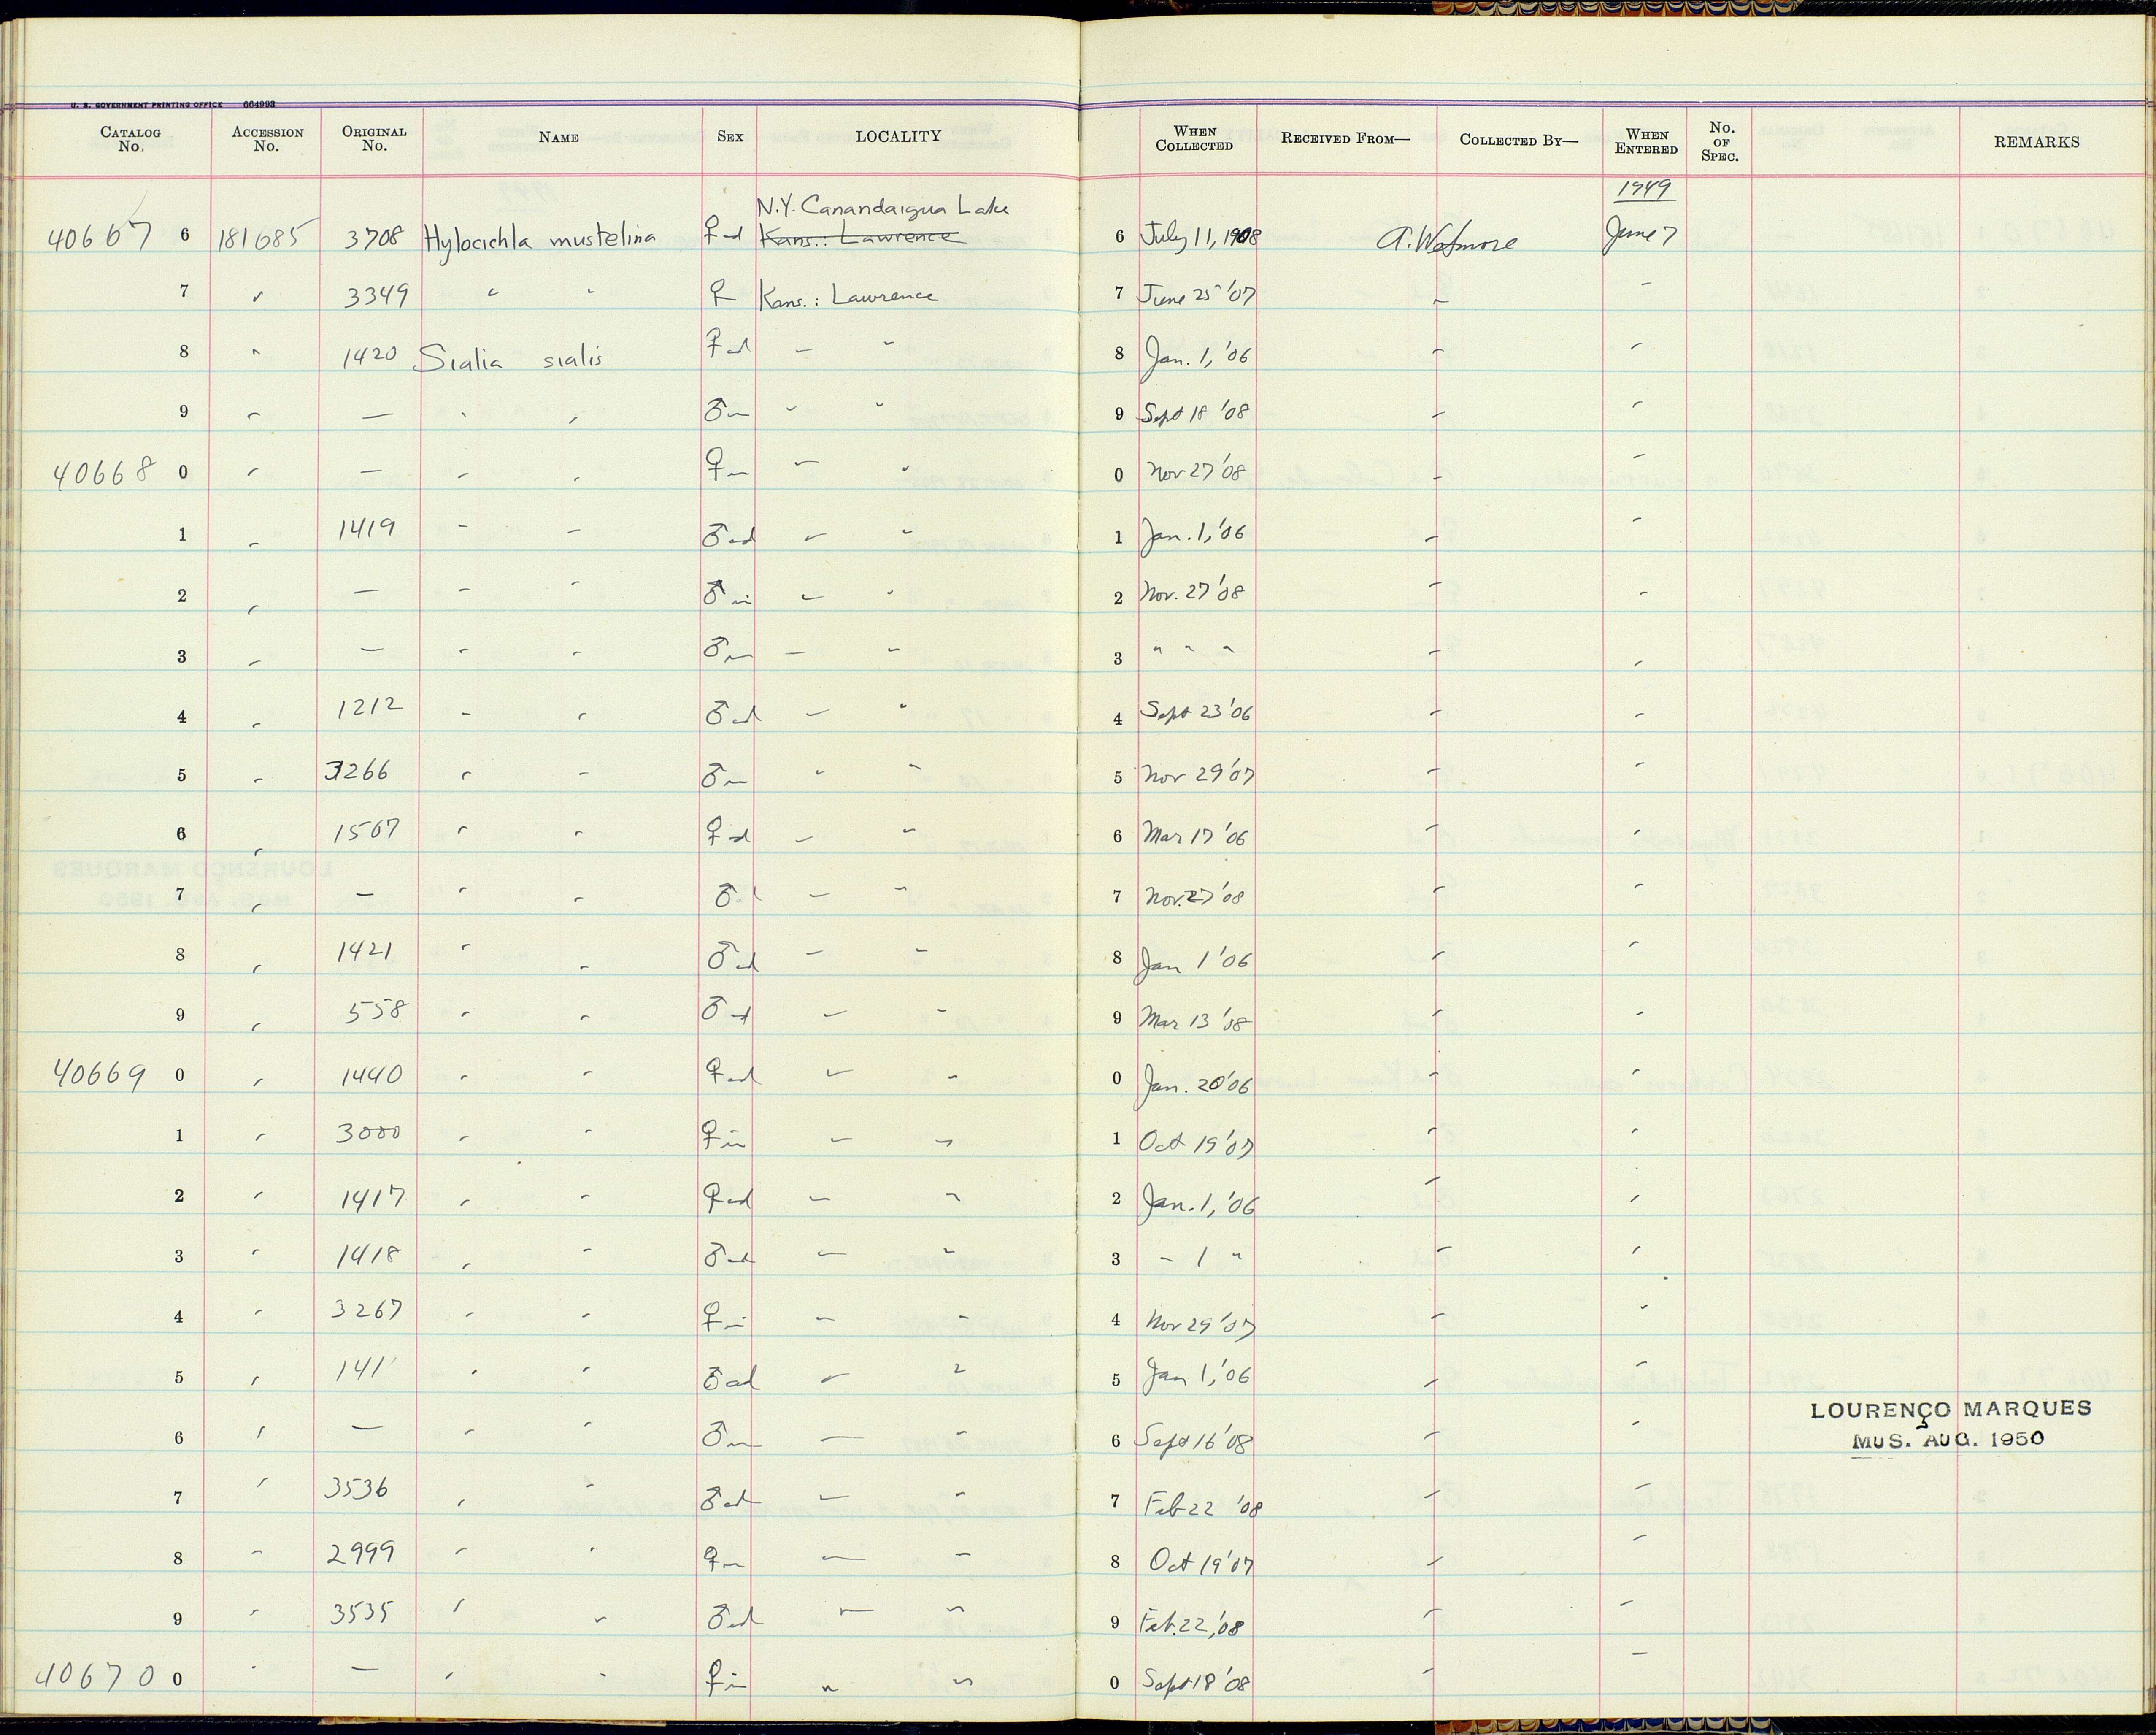 U. S. GOVERNMENT PRINTING OFFICE 664993
CATALOG No. ACCESSION No. ORIGINAL No. NAME SEX LOCALITY WHEN COLLECTED RECEIVED FROM— COLLECTED BY— WHEN ENTERED No. OF SPEC. REMARKS
1949
N.Y. Canandaigua Lake
40667 6 181685 3708 Hylocichla mustelina ♀ ad Kans.: Lawrence 6 July 11, 1908 A. Wetmore June 7
7 " 3349 " " ♀ Kans.: Lawrence 7 June 25 '07 " "
8 " 1420 Sialia sialis ♀ ad " " 8 Jan. 1, '06 " "
9 " — " " ♂ im " " 9 Sept 18 '08 " "
40668 0 " — " " ♀ im " " 0 Nov 27 '08 " "
1 " 1419 " " ♂ ad " " 1 Jan. 1, '06 " "
2 " — " " ♂ im " " 2 Nov. 27 '08 " "
3 " — " " ♂ im " " 3 " " " " "
4 " 1212 " " ♂ ad " " 4 Sept 23 '06 " "
5 " 3266 " " ♂ im " " 5 Nov 29 '07 " "
6 " 1567 " " ♀ ad " " 6 Mar 17 '06 " "
7 " — " " ♂ " " 7 Nov. 27 '08 " "
8 " 1421 " " ♂ ad " " 8 Jan 1 '06 " "
9 " 558 " " ♂ ad " " 9 Mar 13 '08 " "
40669 0 " 1440 " " ♀ ad " " 0 Jan. 20 '06 " "
1 " 3000 " " ♀ im " " 1 Oct 19 '07 " "
2 " 1417 " " ♀ ad " " 2 Jan. 1, '06 " "
3 " 1418 " " ♂ ad " " 3 " 1 " " "
4 " 3267 " " ♀ im " " 4 Nov 29 '07 " "
5 " 141 " " ♂ ad " " 5 Jan 1, '06 " "
LOURENÇO MARQUES
MUS. AUG. 1950
6 " — " " ♂ im " " 6 Sept 16 '08 " "
7 " 3536 " " ♂ ad " " 7 Feb 22 '08 " "
8 " 2999 " " ♀ im " " 8 Oct 19 '07 " "
9 " 3535 " " ♂ ad " " 9 Feb. 22, '08 " "
40670 0 " — " " ♀ im " " 0 Sept 18 '08 " "